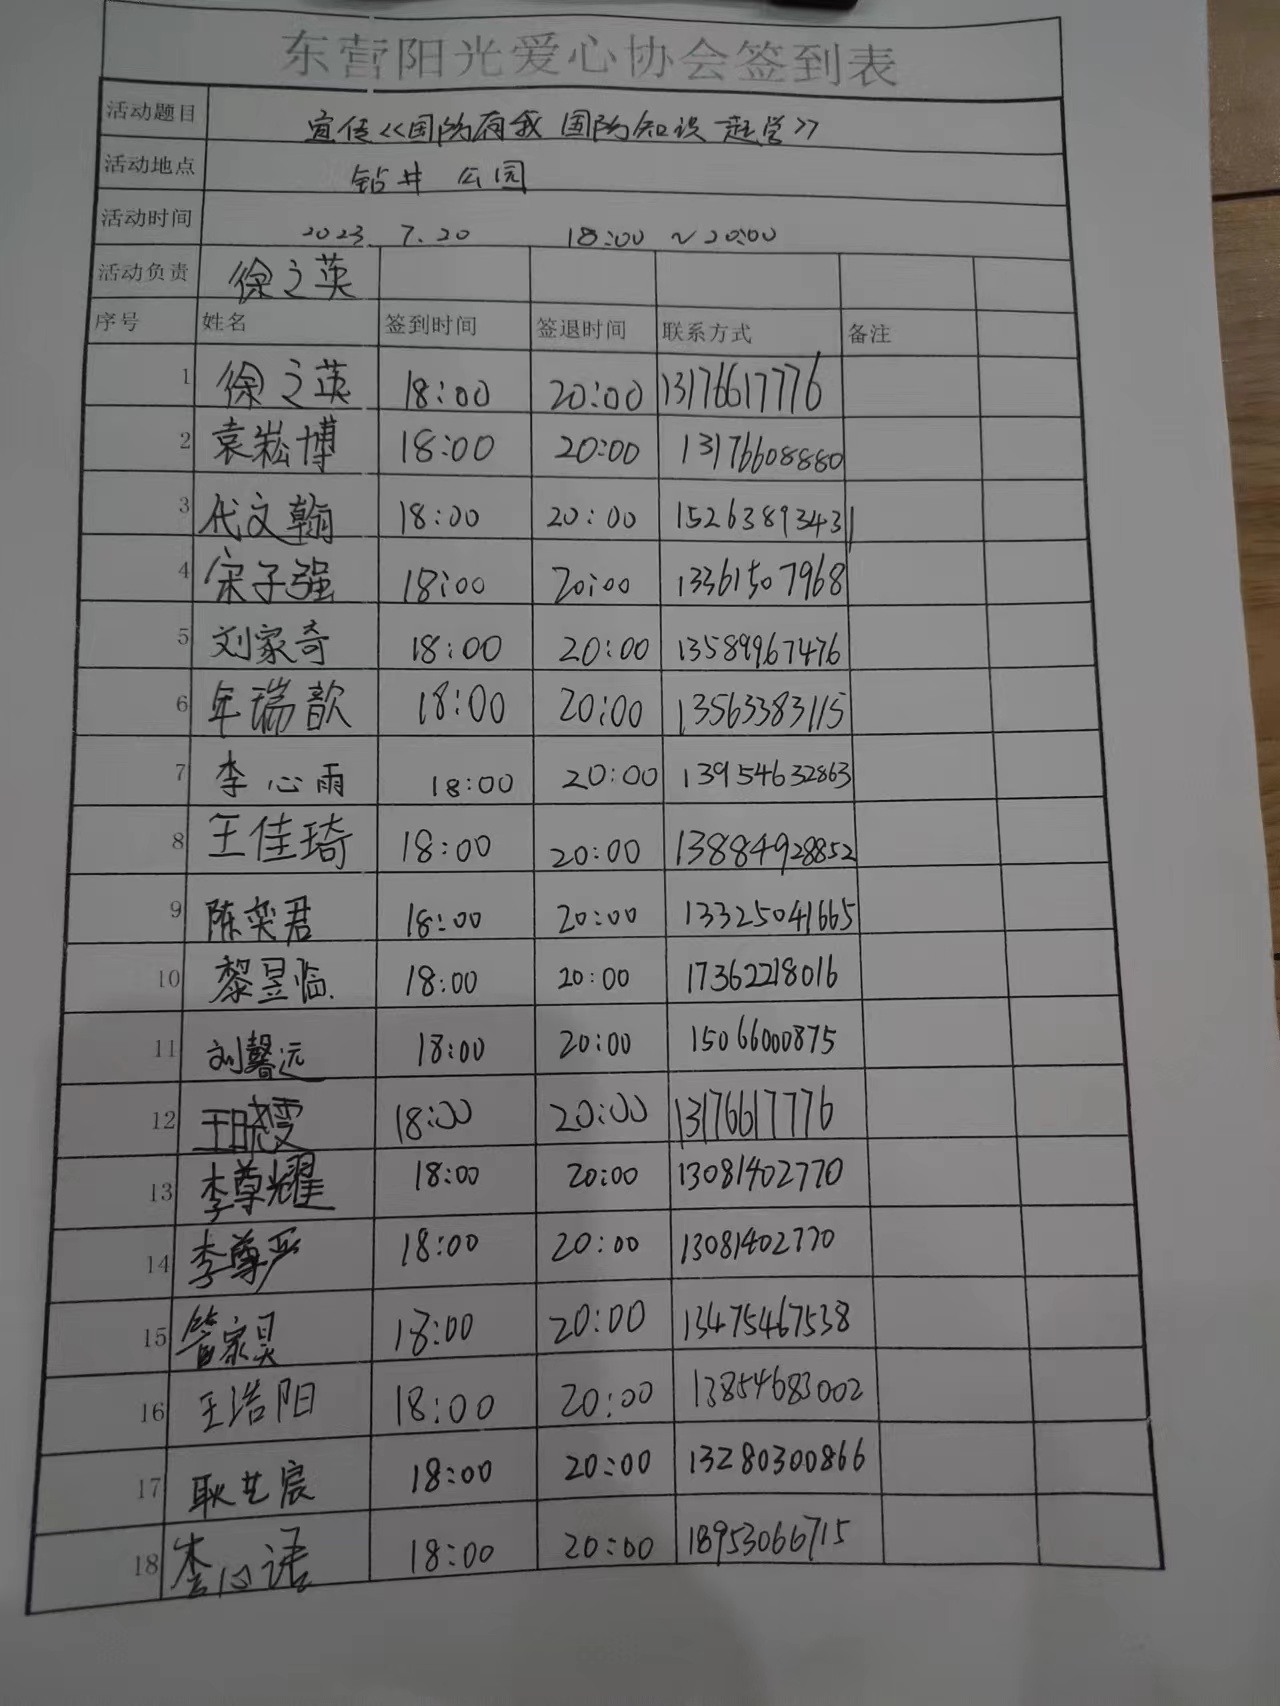 东营阳光爱心协会签到表
活动题目 宣传《国防有我 国防知识 起学》
活动地点 钻井 公园
活动时间 2023. 7.20 18:00 ~ 20:00
活动负责 徐之英
序号 姓名 签到时间 签退时间 联系方式 备注
1 徐之英 18:00 20:00 13176617776
2 袁崧博 18:00 20:00 13176608880
3 代文翰 18:00 20:00 15263893431
4 宋子强 18:00 20:00 13361507968
5 刘家奇 18:00 20:00 13589967476
6 年瑞歆 18:00 20:00 13563383115
7 李心雨 18:00 20:00 13954632863
8 王佳琦 18:00 20:00 13884928852
9 陈奕君 18:00 20:00 13325041665
10 黎昱临 18:00 20:00 17362218016
11 刘馨远 18:00 20:00 15066000875
12 王晓雯 18:00 20:00 13176617776
13 李尊耀 18:00 20:00 13081402770
14 李尊严 18:00 20:00 13081402770
15 管家昊 18:00 20:00 13475467538
16 王浩阳 18:00 20:00 13854683002
17 耿艺宸 18:00 20:00 13280300866
18 李心语 18:00 20:00 18953066715